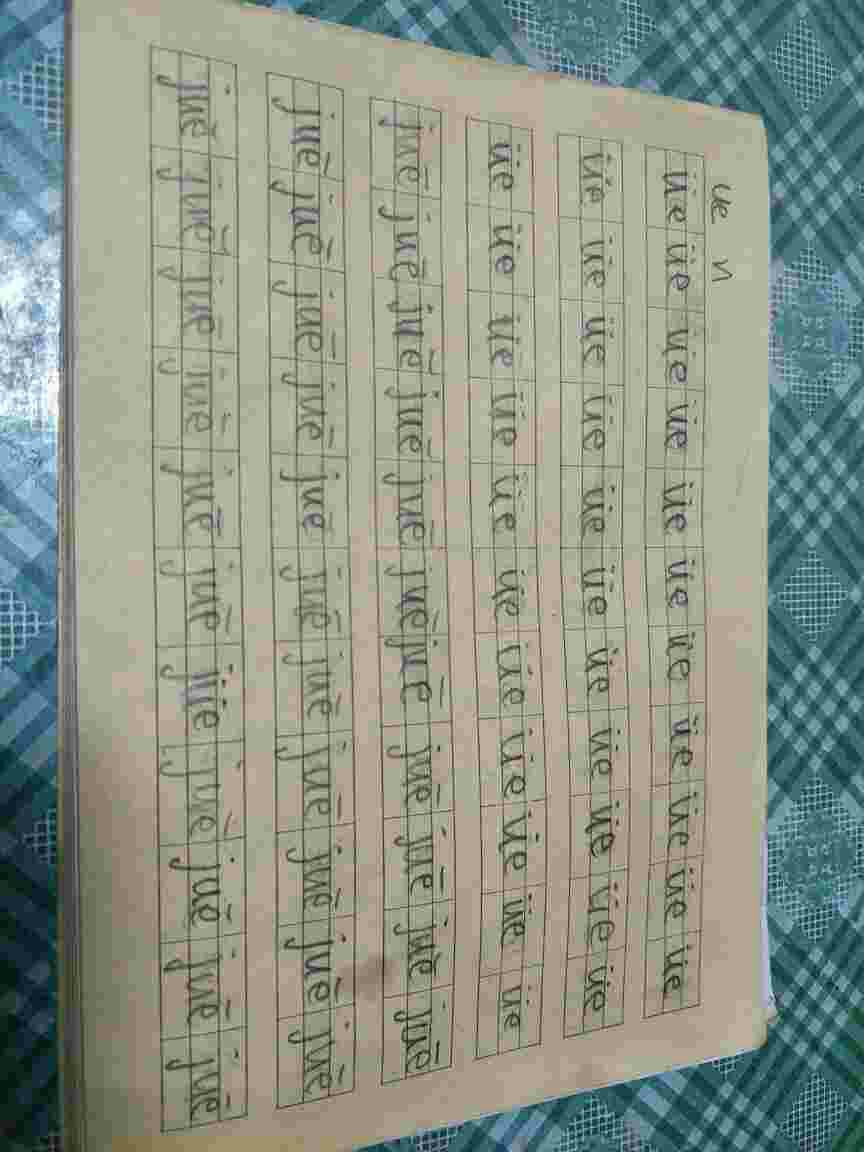 üe n
üe üe üe üe üe üe üe üe üe üe üe
üe üe üe üe üe üe üe üe üe üe üe
üe üe üe üe üe üe üe üe üe üe üe
juē juē juē juē juē juē juē juē juē juē juē
juē juē juē juē juē juē juē juē juē juē juē
juē juē juē juē juē juē jüe juē juē juē juē